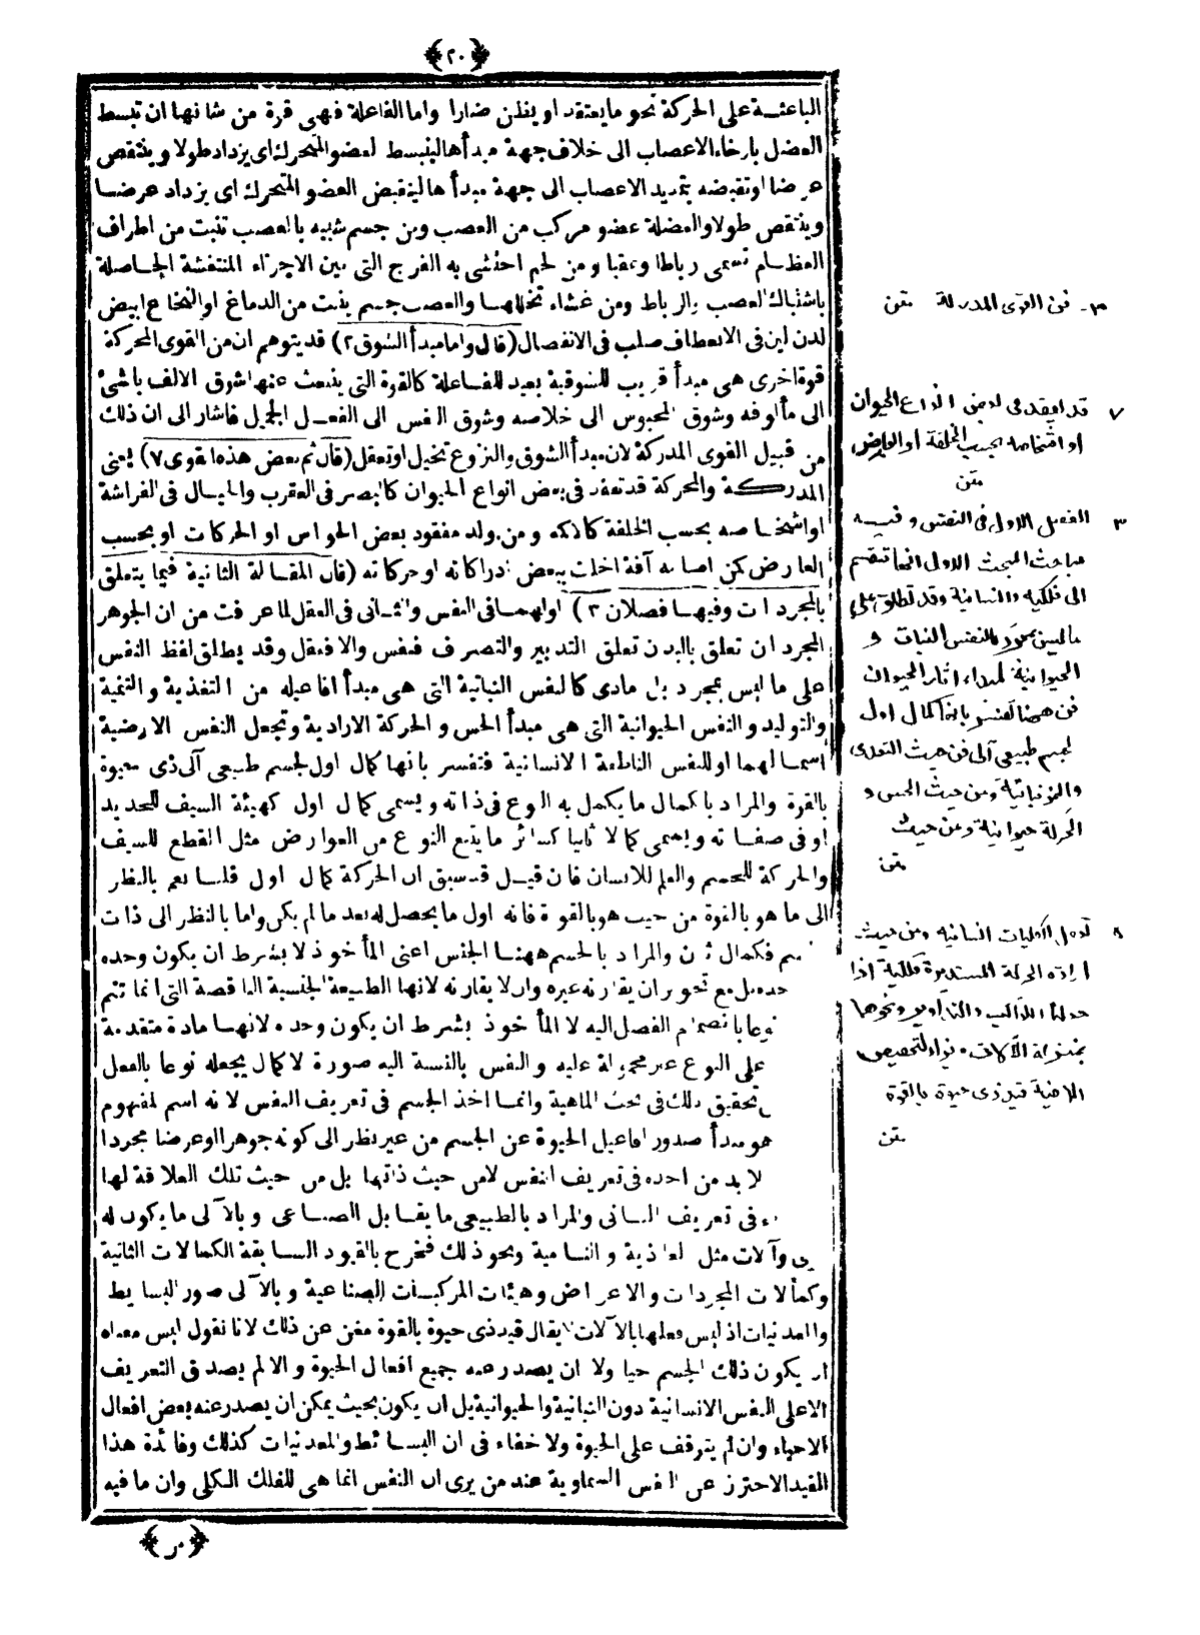 ﴿٢٠﴾
الباعثة على الحركة نحو ما يعتقد او يظن ضارا واما الفاعلة فهى قوة من شانها ان تبسط
العضل بارخاء الاعصاب الى خلاف جهة مبدأها لينبسط لعضو المتحرك اى يزداد طولا وينتقص
عرضا او تقبضه بتمديد الاعصاب الى جهة مبدأها لينقبض العضو المتحرك اى يزداد عرضا
وينتقص طولا والعضلة عضو مركب من العصب ومن جسم شبيه بالعصب تنبت من اطراف
العظام تسمى رباطا وعقبا ومن لحم احتشى به الفرج التى بين الاجزاء المنتفشة الحاصلة
باشتباك العصب والرباط ومن غشاء تخللها والعصب جسم ينبت من الدماغ او النخاع ابيض
لدن لين فى الانعطاف صلب فى الانفصال (قال واما مبدأ الشوق ٢) قد يتوهم ان من القوى المحركة
قوة اخرى هى مبدأ قريب للشوقية بعيد للفاعلة كالقوة التى ينبعث عنها شوق الالف بالشئ
الى مألوفه وشوق المحبوس الى خلاصه وشوق النفس الى الفعل الجميل فاشار الى ان ذلك
من قبيل القوى المدركة لان مبدأ الشوق والنزوع تخيل او تعقل (قال ثم بعض هذه القوى ٧) يعنى
المدركة والمحركة قد تفقد فى بعض انواع الحيوان كالبصر فى العقرب والخيال فى الفراشة
او اشخاصه بحسب الخلقة كالاكمه ومن ولد مفقود بعض الحواس او الحركات او بحسب
العارض كمن اصابه آفة اخلت ببعض ادراكاته او حركاته (قال المقالة الثانية فيما يتعلق
بالمجردات وفيها فصلان ٣) اولهما فى النفس والثانى فى العقل لما عرفت من ان الجوهر
المجرد ان تعلق بالبدن تعلق التدبير والتصرف فنفس والا فعقل وقد يطلق لفظ النفس
على ما ليس بمجرد بل مادى كالنفس النباتية التى هى مبدأ افاعيله من التغذية والتنمية
والتوليد والنفس الحيوانية التى هى مبدأ الحس والحركة الارادية وتجعل النفس الارضية
اسما لهما او للنفس الناطقة الانسانية فتفسر بانها كمال اول لجسم طبيعى آلى ذى حيوة
بالقوة والمراد بالكمال ما يكمل به النوع فى ذاته ويسمى كمال اول كهيئة السيف للحديد
او فى صفاته ويسمى كمالا ثانيا كسائر ما يتبع النوع من العوارض مثل القطع للسيف
والحركة للجسم والعلم للانسان فان قيل قد سبق ان الحركة كمال اول قلنا نعم بالنظر
الى ما هو بالقوة من حيث هو بالقوة فانه اول ما يحصل له بعد ما لم يكن واما بالنظر الى ذات
فكمال ثان والمراد بالجسم ههنا الجنس اعنى المأخوذ لا بشرط ان يكون وحده
بل مع تجويز ان يقارنه غيره وان لا يقارنه لانها الطبيعة الجنسية الناقصة التى انما تتم
نوعا بانضمام الفصل اليه لا المأخوذ بشرط ان يكون وحده لانها مادة متقدمة
على النوع غير محمولة عليه والنفس بالنسبة اليه صورة لا كمال يجعله نوعا بالفعل
تحقيق ذلك فى بحث الماهية وانما اخذ الجسم فى تعريف النفس لانه اسم لمفهوم
هو مبدأ صدور افاعيل الحيوة عن الجسم من غير نظر الى كونه جوهرا او عرضا مجردا
لا بد من اخذه فى تعريف النفس لا من حيث ذاتها بل من حيث تلك العلاقة لها
فى تعريف البانى والمراد بالطبيعى ما يقابل الصناعى وبالآلى ما يكون له
وآلات مثل الغاذية والنامية ونحو ذلك فخرج بالقيود السابقة الكمالات الثانية
وكمالات المجردات والاعراض وهيئات المركبات الصناعية وبالآلى صور البسايط
والمعدنيات اذ ليس فعلها بالآلات لا يقال قيد ذى حيوة بالقوة مغن عن ذلك لانا نقول ليس معناه
ان يكون ذلك الجسم حيا ولا ان يصدر عنه جميع افعال الحيوة والا لم يصدق التعريف
الا على النفس الانسانية دون النباتية والحيوانية بل ان يكون بحيث يمكن ان يصدر عنه بعض افعال
الاحياء وان لم يتوقف على الحيوة ولا خفاء فى ان البسائط والمعدنيات كذلك وفائدة هذا
القيد الاحتراز عن النفس السماوية عند من يرى ان النفس انما هى للفلك الكلى وان ما فيه
٢- فمن القوى المدركة متن
٧ قد يفقد فى بعض انواع الحيوان
او اشخاصه بحسب الخلقة او العارض
متن
٣ الفصل الاول فى النفس وفيه
مباحث المبحث الاول انها تنقسم
الى فلكية وانسانية وقد تطلق على
ما ليس بمجرد كالنفس النبات و
الحيوانية لمبداء اثار الحيوان
فمن ههنا تفسر بانها كمال اول
لجسم طبيعى آلى فمن حيث التغذى
والنمو نباتية ومن حيث الحس و
الحركة حيوانية ومن حيث
متن
٨ تعقل الكليات انسانية ومن حيث
ارادة الحركة المستديرة فلكية اذا
جعلنا الكواكب والتداوير ونحوها
بمنزلة الآلات
قيد ذى حيوة بالقوة
متن